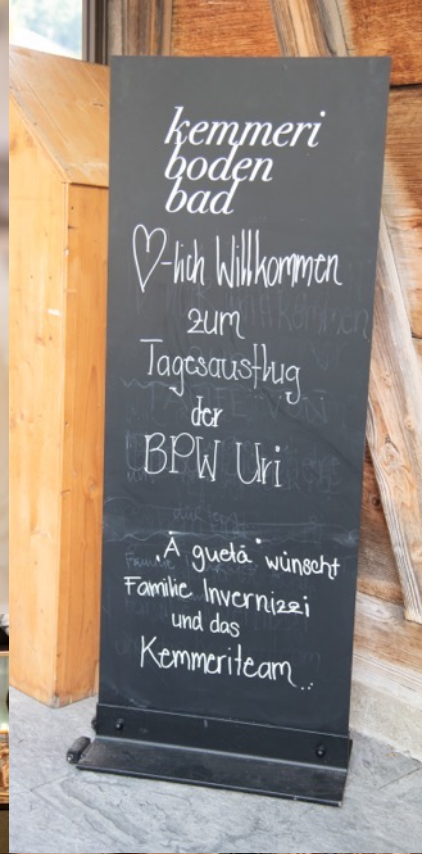 kemmeri
boden
bad
♡-lich Willkommen
zum
Tagesausflug
der
BPW Uri
„Ä guetä" wünscht
Familie Invernizzi
und das
Kemmeriteam..